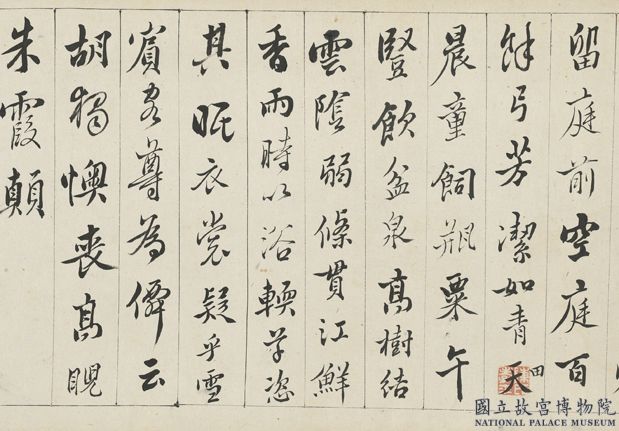 留庭前空庭百
餘弓芳潔如青天
田
晨童飼瓶粟午
豎飲盆泉高樹結
雲陰弱條貫江鮮
香雨時以浴輭草恣
其眠衣裳疑乎雪
賓客尊為僊云
胡獨懊喪高睨
朱霞顛
國立故宮博物院
NATIONAL PALACE MUSEUM